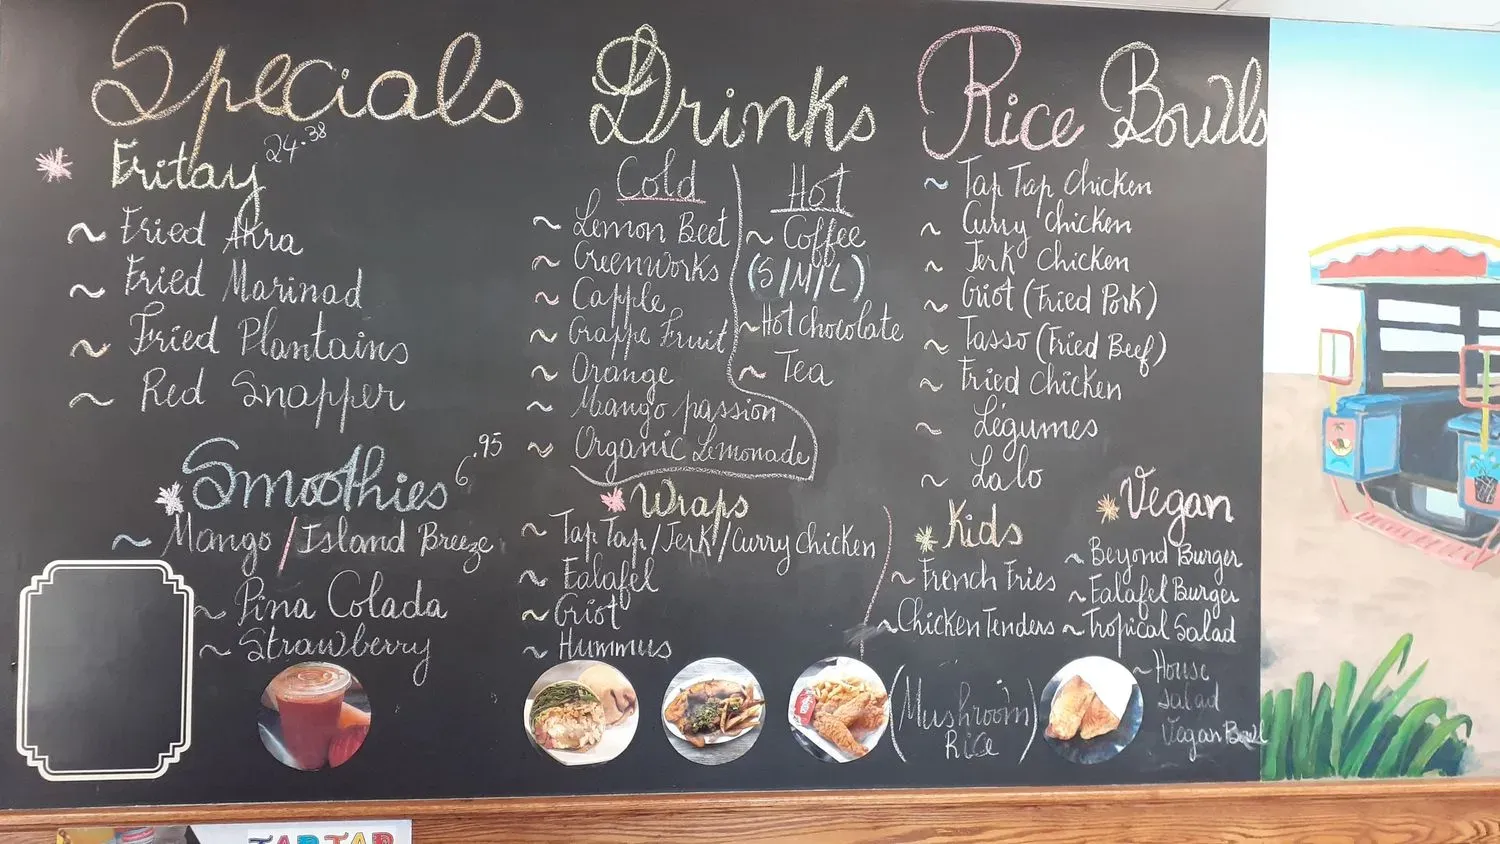 Specials
Fritay 24.38
~ Fried Akra
~ Fried Marinad
~ Fried Plantains
~ Red Snapper
Smoothies 6.95
~ Mango / Island Breeze
~ Pina Colada
~ Strawberry
Drinks
Cold
~ Lemon Beet
~ Greenworks
~ Capple
~ Grappe Fruit
~ Orange
~ Mango passion
~ Organic Lemonade
Hot
~ Coffee
(S/M/L)
~ Hot chocolate
~ Tea
Wraps
~ Tap Tap / Jerk / Curry chicken
~ Falafel
~ Griot
~ Hummus
Rice Bowls
~ Tap Tap Chicken
~ Curry Chicken
~ Jerk Chicken
~ Griot (Fried Pork)
~ Tasso (Fried Beef)
~ Fried Chicken
~ Légumes
~ Lalo
Kids
~ French Fries
~ Chicken Tenders
(Mushroom
Rice)
Vegan
~ Beyond Burger
~ Falafel Burger
~ Tropical Salad
~ House
Salad
Vegan Bowl
TAP TAP